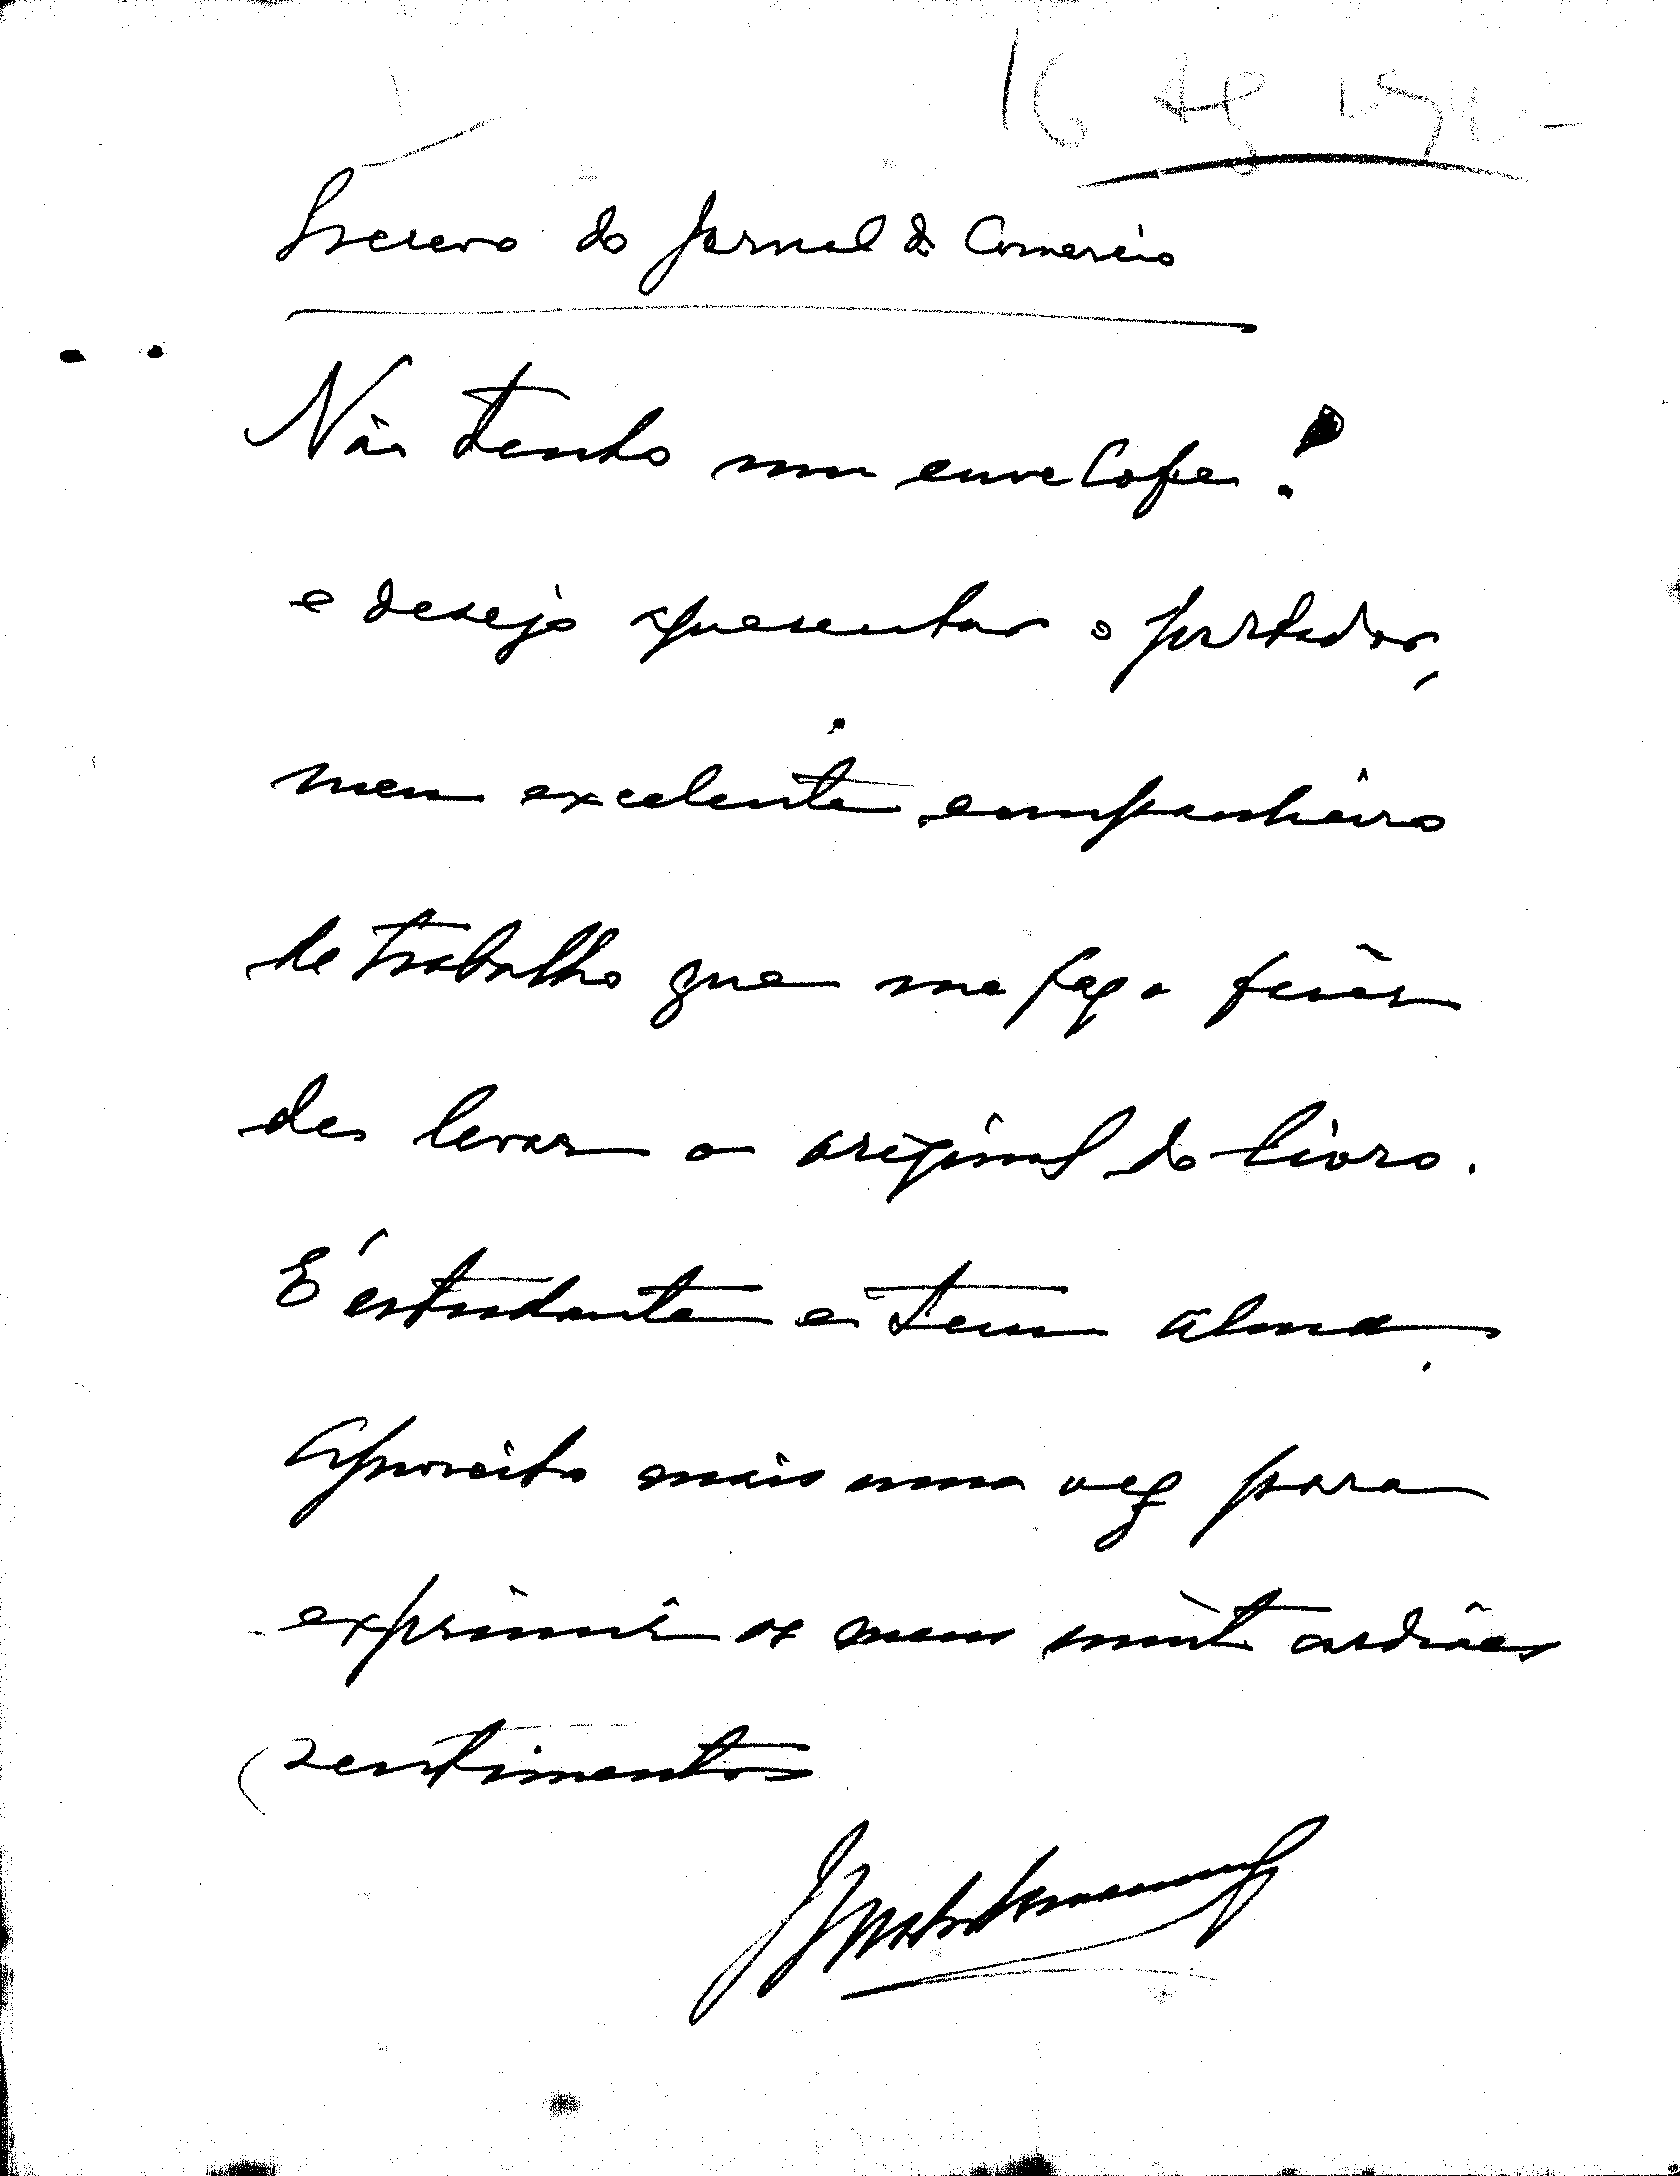 16 Ag 194
Escrevo do Jornal do Comercio
Não tenho um envelope!
e desejo apresentar o portador,
meu excelente companheiro
de trabalho que me faz o favor
de levar o original do livro.
É estudante e tem alma.
Aproveito mais uma vez para
exprimir os meus muit cordiaes
sentimentos